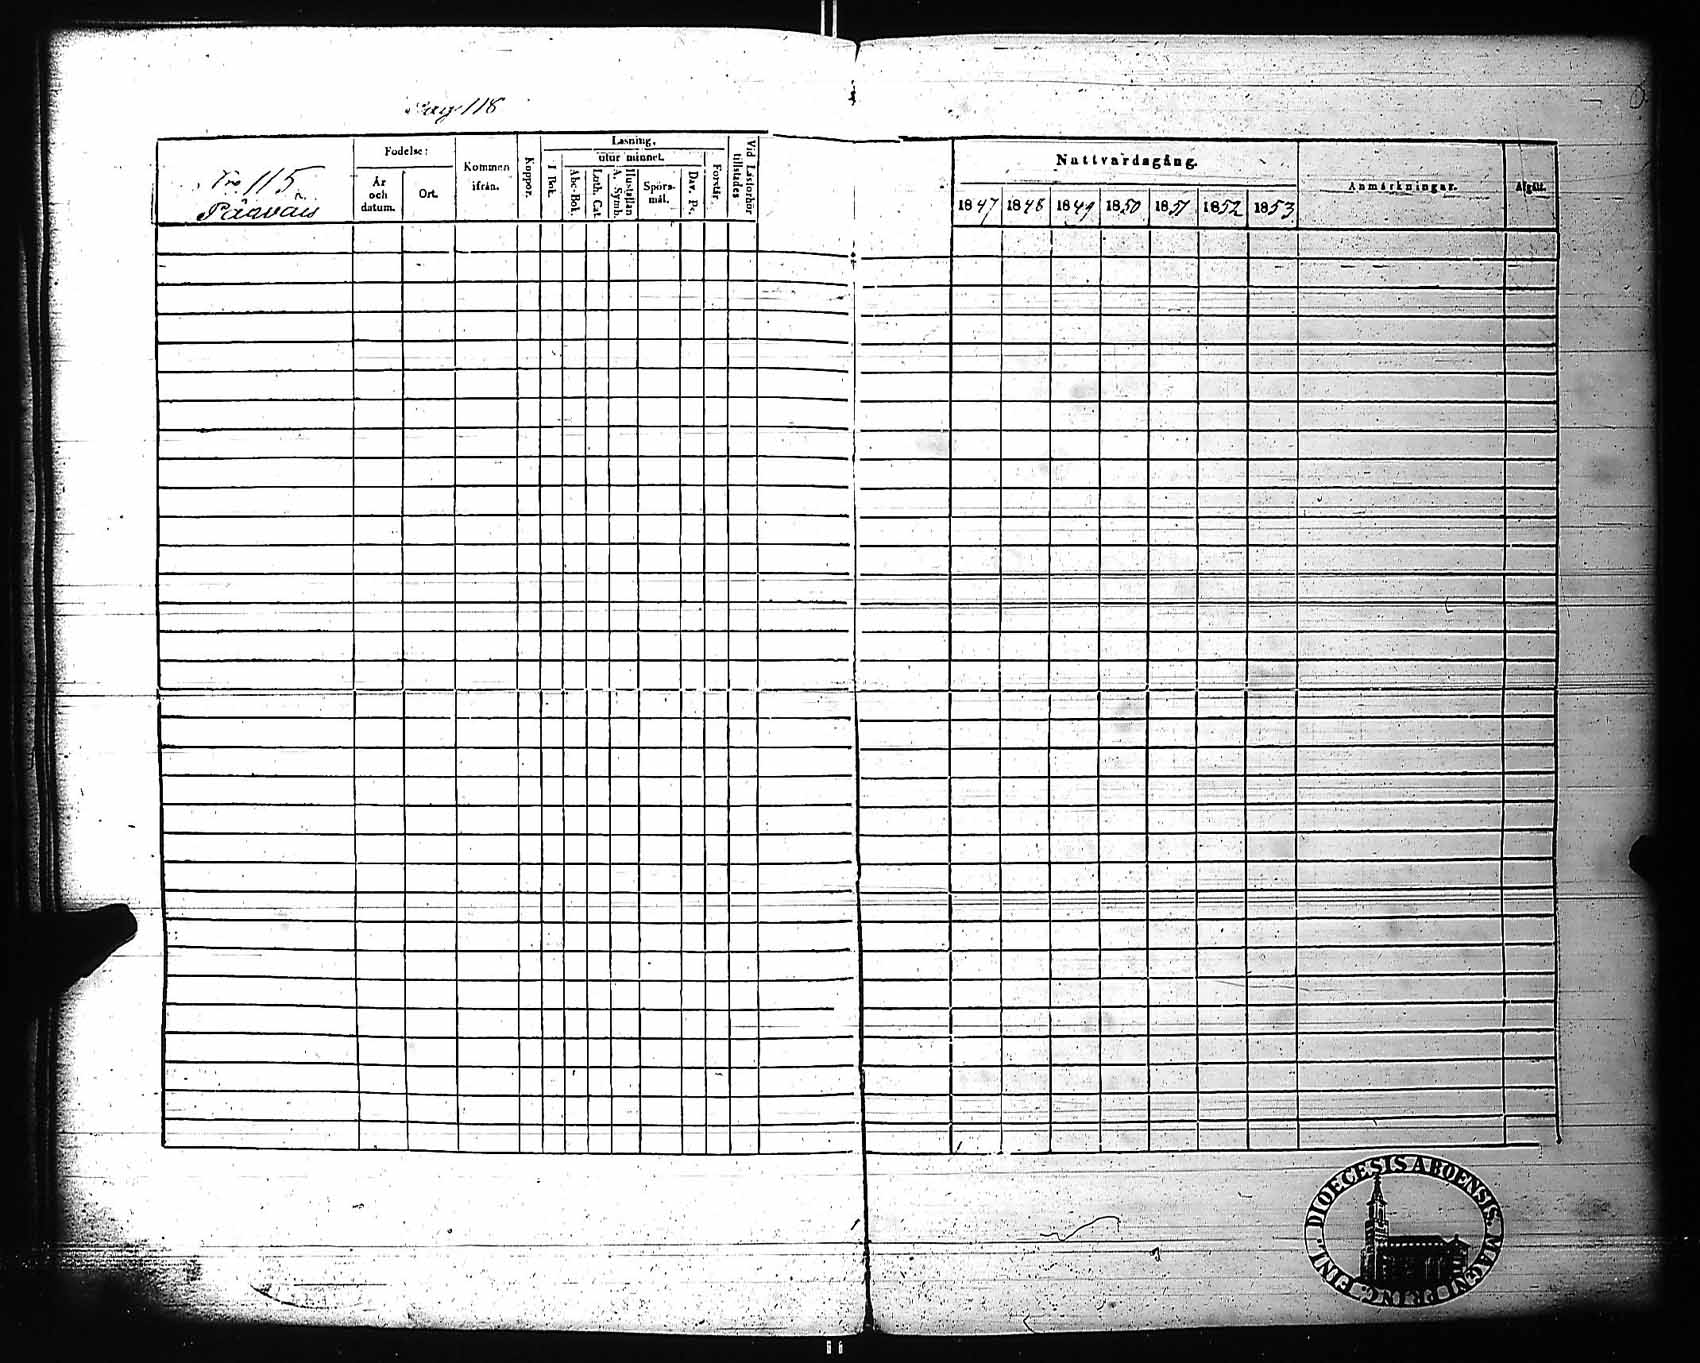 Pag 118
No 115
Påavais
Fodelse:
År
och
datum.
Ort.
Kommen
ifrån.
Koppor.
Läsning,
I Bok.
utur minnet.
Abc-Bok.
Luth. Cat.
Hustaflan
A. Symb.
Spörs-
mål.
Dav. Ps.
Förstår.
Vid Läsförhör
tillstädes
Nattvardsgång.
1847 1848 1849 1850 1851 1852 1853
Anmärkningar.
Afgått.
DIOECESIS ABOENSIS. MAGNI